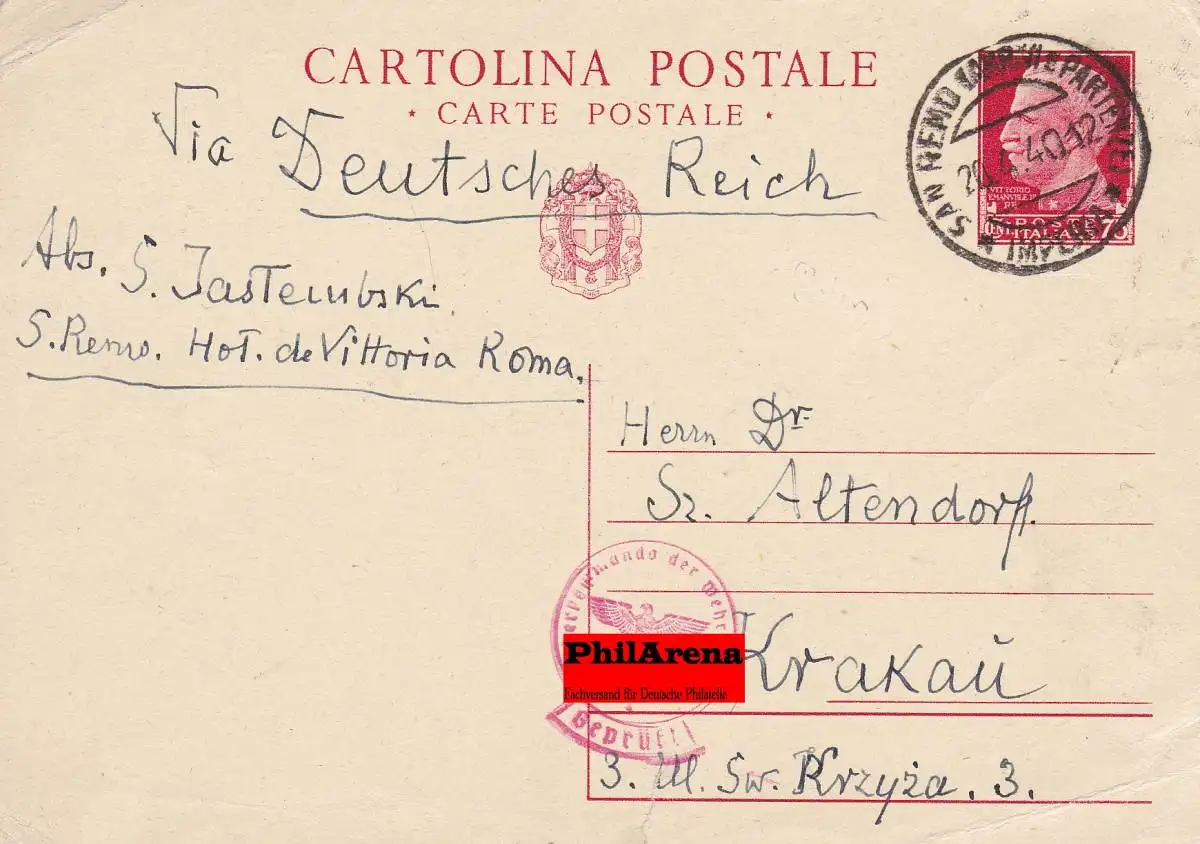 CARTOLINA POSTALE
* CARTE POSTALE *
Via Deutsches Reich
Abs. S. Jastembski
S. Remo. Hot. de Vittoria Roma.
SAN REMO ARRIVI E PARTENZE
40.12
* IMPERIA *
VITTORIO
EMANVELE
RE
POSTE
ITALIANE
75
Herrn Dr
Sz. Altendorf.
erkommando der Wehr
PhilArena
Fachversand für Deutsche Philatelie
Geprüft
Krakau
3. Ul. Św. Krzyża. 3.